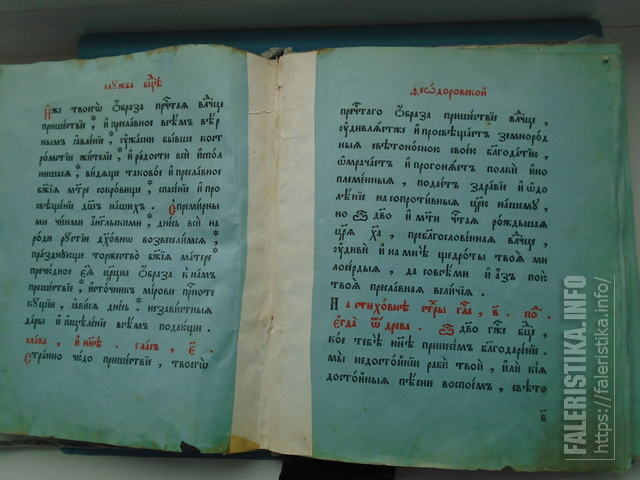 слꙋжба бц҃ѣ
И҆́же твоегѡ̀ ѻ҆́браза преⷱ҇таѧ влⷣчце
пришествїе, и҆ преславное всѣмъ вѣр
нымъ ꙗ҆вленїе, оу҆жасни бывше кост
ромстїи жителїе, и҆ радости всѝ и҆спо
нишасѧ, видѧще таковое и҆ преславное
бж҃їѧ мт҃ре сокровище, спасенїе и҆ про
свѣщенїе дш҃ъ нашихъ. с премирны
ми чинми а҆нг҃льскими, днⷭ҇ь всѝ на
роди рꙋстїи дх҃овнѡ возвеселимсѧ,
празднꙋюще торжество бж҃їѧ матере
пречюдное еѧ̀ цр҃цы ѻ҆́браза к намъ
пришествїе, и҆сточникъ мѵрови присноте
кꙋщїи, ꙗ҆висѧ днⷭ҇ь. независтныѧ
дары и҆ и҆сцѣленїе всѣмъ подающи.
слава, и҆ ны́нѣ. гласъ, є҃.
Странно чюдо пришествїе, твоегѡ̀
Ѳеѡдоровской
преⷱ҇таго ѻ҆́браза пришествїе влⷣчце,
оу҆дивлѧетже и҆ просвѣщаетъ земнород
ныѧ свѣтоносною своею благодатїю,
ѡ҆мрачаетъ и҆ прогонѧетъ полки и҆но
племенныѧ, подаетъ здравїе и҆ ѡ҆до
лѣнїе на сопротивныѧ цр҃ю нашемꙋ,
но ѽ дв҃о и҆ мт҃и чⷭ҇таѧ рождьшаѧ
цр҃ѧ хⷭ҇а, преблагословеннаѧ влⷣчце,
оу҆дивѝ и҆ на мнѣ̀ щедроты твоѧ̀ ми
лосердыѧ, да совсѣми и҆ а҆зъ пою̀
твоѧ̀ преславнаѧ величїѧ.
На стиховнѣ стⷯры гла̀, в҃. поⷣ.
є҆гда̀ ѿ древа. ѽ дв҃о гж҃е бцⷣе,
кое тебѣ̀ ны́нѣ принесемъ благодаренїе.
мы̀ недостойнїи рабѝ твоѝ, и҆лѝ кїѧ
достойныѧ пѣсни воспоемъ, свѣто
в҃
FALERISTIKA.INFO
https://faleristika.info/